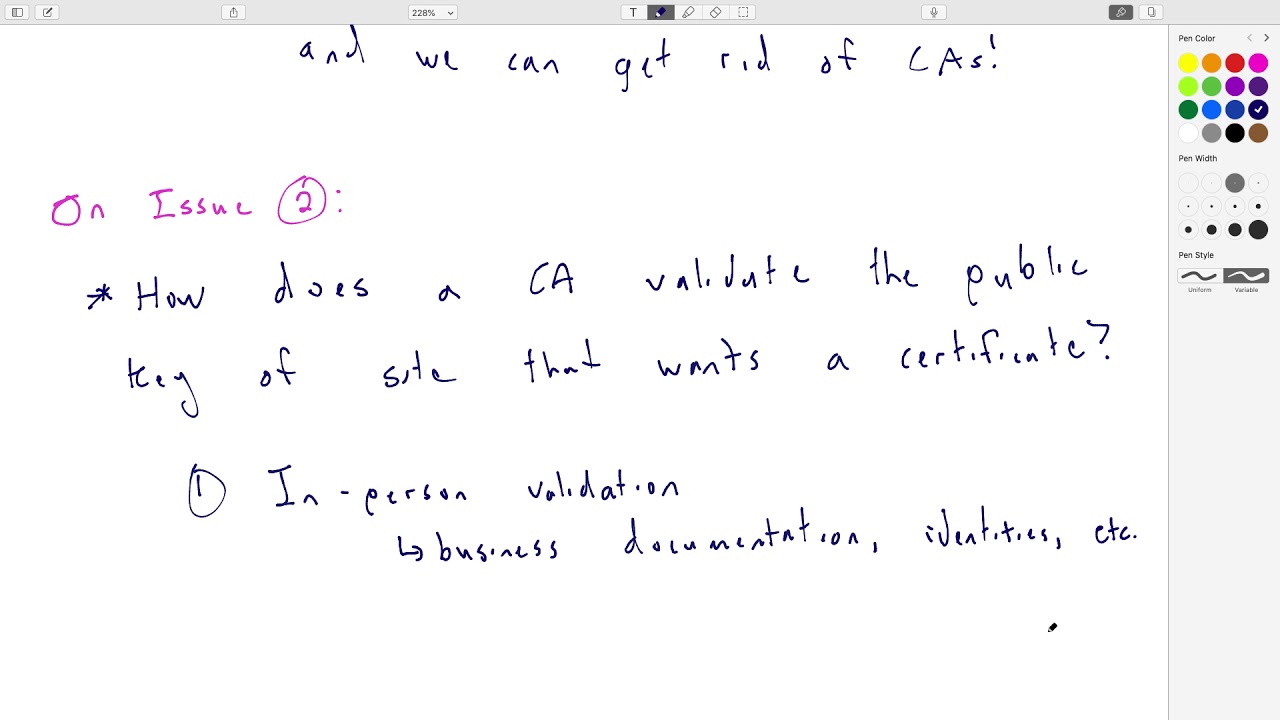 228%
T
and we can get rid of CAs!
On Issue 2:
* How does a CA validate the public
key of site that wants a certificate?
1 In-person validation
↳ business documentation, identities, etc.
Pen Color
Pen Width
Pen Style
Uniform Variable